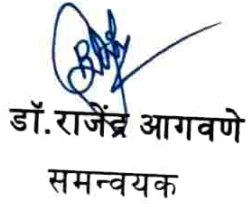 डॉ.राजेंद्र आगवणे
समन्वयक